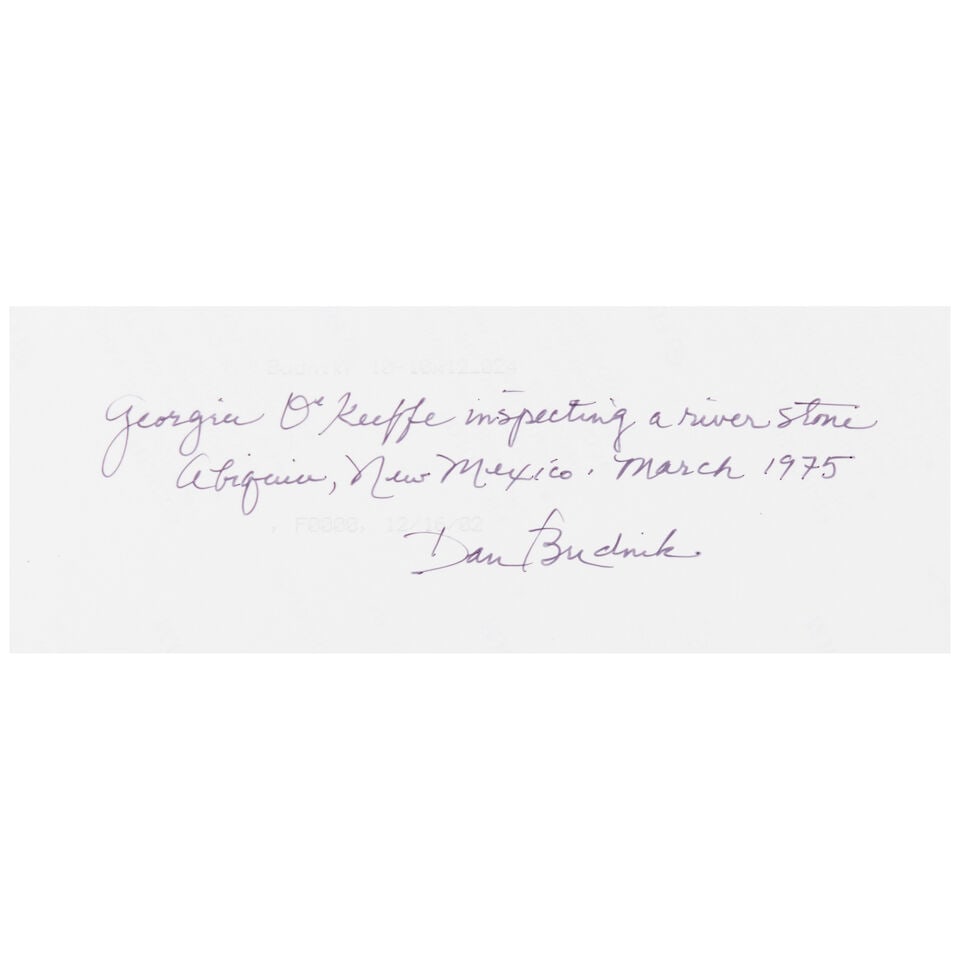 Georgia O'Keeffe inspecting a river stone
Abiquiu, New Mexico. March 1975
, F0000, 12/16/02
Dan Budnik